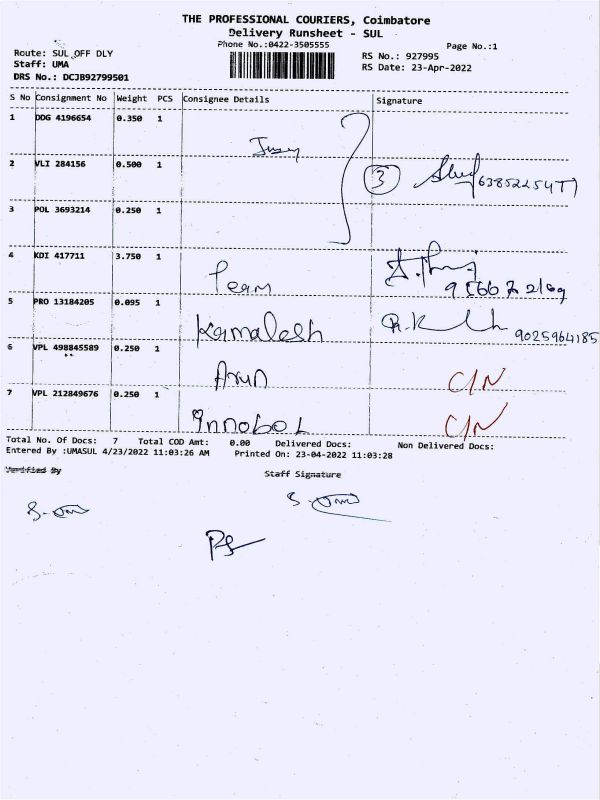 THE PROFESSIONAL COURIERS, Coimbatore
Delivery Runsheet - SUL
Phone No.:0422-3505555
Page No.:1
Route: SUL OFF DLY
RS No.: 927995
Staff: UMA
RS Date: 23-Apr-2022
DRS No.: DCJB92799501
S No Consignment No Weight PCS Consignee Details Signature
1 DDG 4196654 0.350 1
2 VLI 284156 0.500 1 3
3 POL 3693214 0.250 1
4 KDI 417711 3.750 1
5 PRO 13184205 0.095 1 Kamalesh 9025964185
6 VPL 498845589 0.250 1 Arun C/N
7 VPL 212849676 0.250 1 C/N
Total No. Of Docs: 7 Total COD Amt: 0.00 Delivered Docs: Non Delivered Docs:
Entered By :UMASUL 4/23/2022 11:03:26 AM Printed On: 23-04-2022 11:03:28
Verified By
Staff Signature